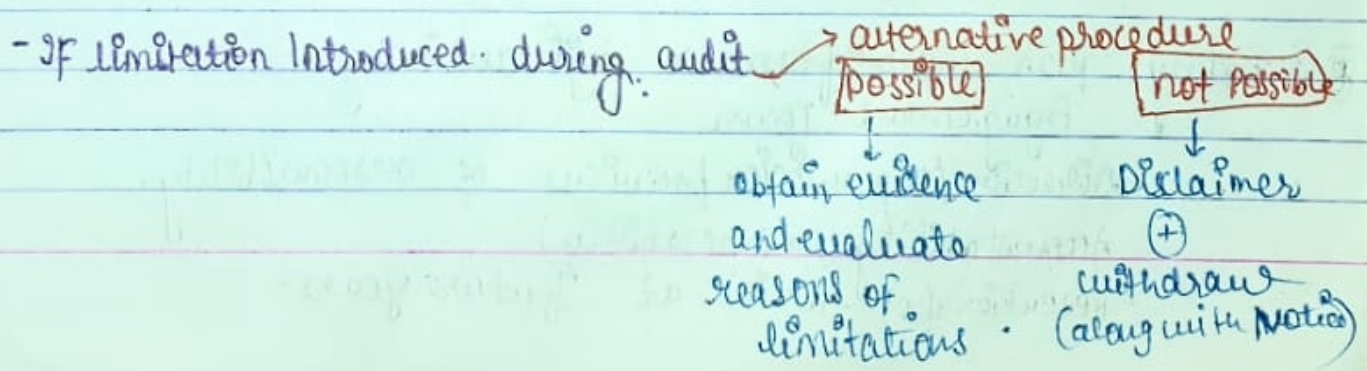 - If limitation Introduced during audit → alternative procedure
possible
not possible
↓
obtain evidence
and evaluate
reasons of
limitations.
↓
Disclaimer
+
withdraw
(along with Notice)